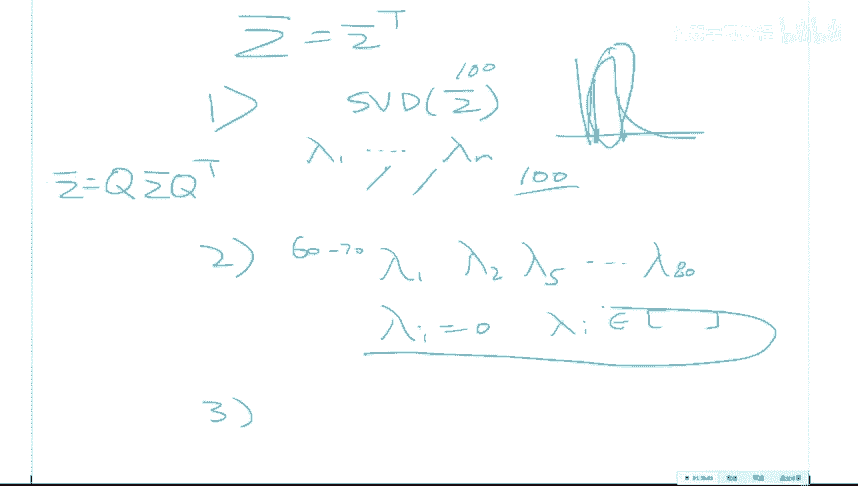 Σ = Σᵀ
1) SVD(Σ) 100
λ₁ ···· λₙ 100
Σ = QΣQᵀ
2) 60-70 λ₁ λ₂ λ₅ ··· λ₈₀
λᵢ = 0 λᵢ ∈ [ ]
3)